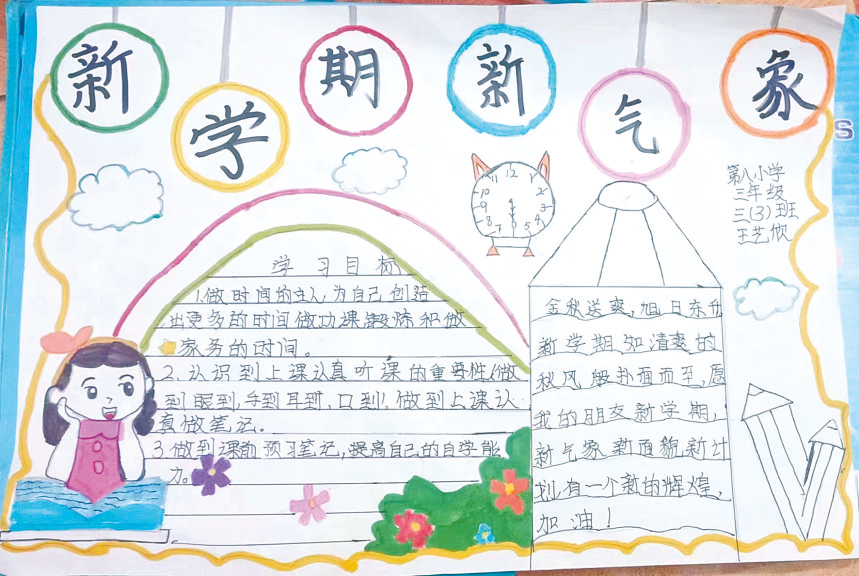 新学期新气象
第八小学
三年级
三(3)班
王艺欣
学习目标
1.做时间的主人为自己创造
出更多的时间做功课锻炼和做
家务的时间。
2、认识到上课认真听课的重要性(做
到眼到,手到耳到,口到)、做到上课认
真做笔记。
3.做到课前预习笔记,提高自己的自学能
力。
金秋送爽,旭日东升
新学期如清爽的
秋风般扑面而至,愿
我的朋友新学期,
新气象新面貌新计
划,有一个新的辉煌,
加油!
12
1
2
3
4
5
6
7
8
9
10
11
S